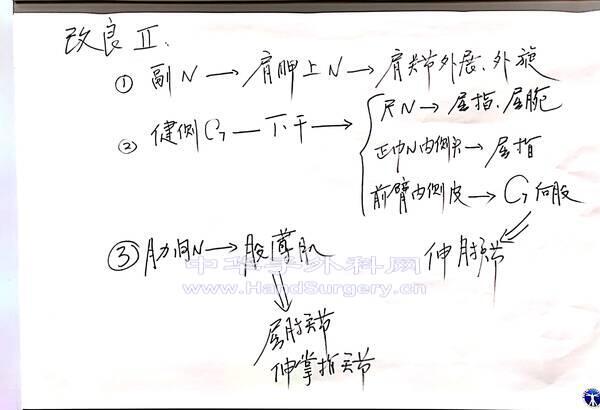 改良Ⅱ.
① 副N→肩胛上N→肩关节外展、外旋
② 健侧C7—下干→
尺N→屈指、屈腕
正中N内侧头→屈指
前臂内侧皮→C7后股
⇒伸肘关节
③ 肋间N→股薄肌
⇒屈肘关节
伸掌指关节
中华手外科网
www.HandSurgery.cn